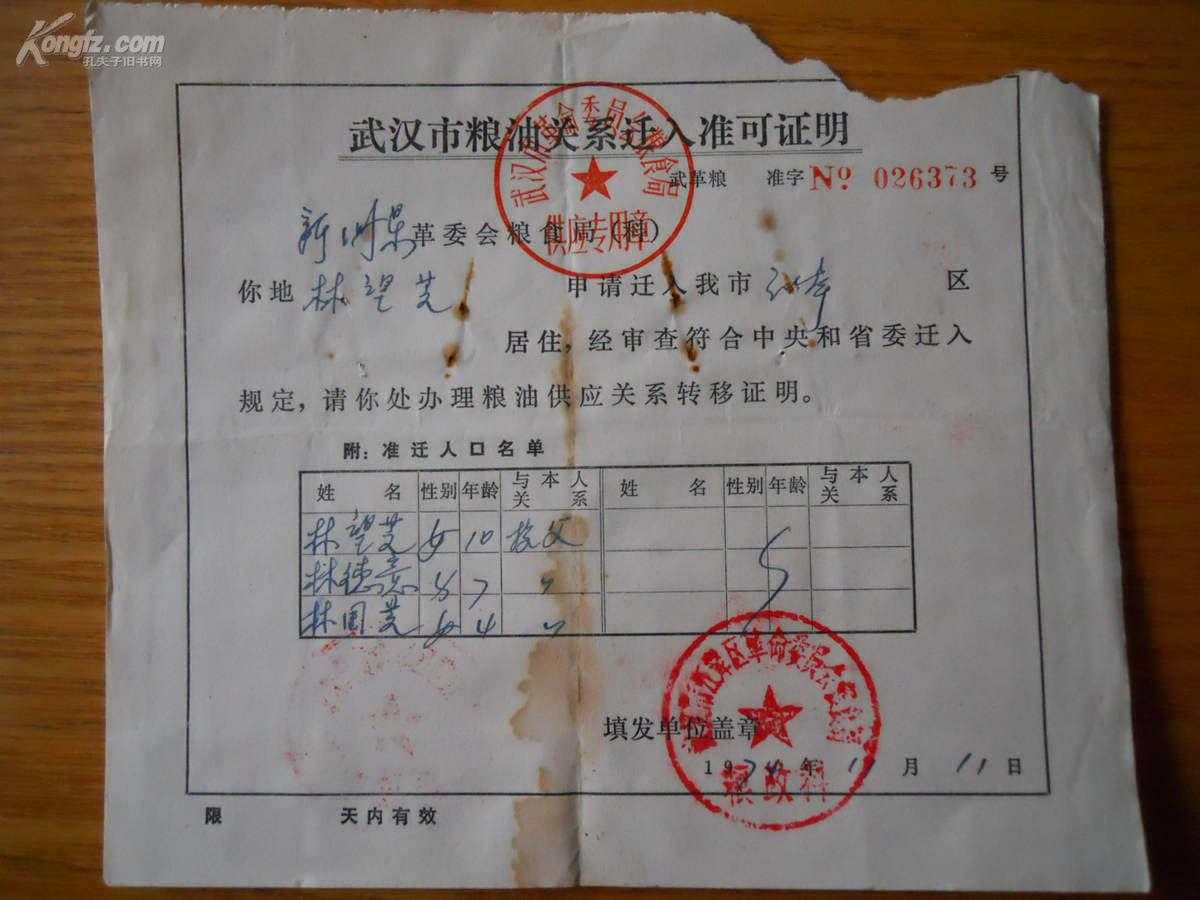 Kongfz.com
孔夫子旧书网
武汉市粮油关系迁入准可证明
武汉市革命委员会粮食局
供应专用章
武革粮 准字 № 026373 号
新洲县革委会粮食局(科)
你地 林望芝 申请迁入我市 江岸 区
居住,经审查符合中央和省委迁入
规定,请你处办理粮油供应关系转移证明。
附:准迁人口名单
姓名 性别 年龄 与本人关系 姓名 性别 年龄 与本人关系
林望芝 女 10 投父
林德意 男 7 〃
林国芝 女 4 〃
武汉市江岸区革命委员会粮食局
粮政科
填发单位盖章
19 年 月 11 日
限 天内有效